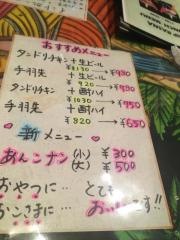 おすすめメニュー
タンドリチキン + 生ビール
¥1130 → ¥980
手羽先 + 生ビール
¥920 → ¥780
タンドリチキン + 酎ハイ
¥1030 → ¥950
手羽先 + 酎ハイ
¥820 → ¥650
新メニュー
あんこナン (小) ¥300
(大) ¥500
おやつに… とても
おこさまに…